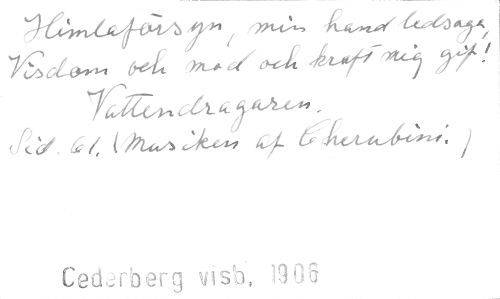 Himlaförsyn, min hand ledsaga,
Visdom och mod och kraft mig gif!
Vattendragaren.
Sid. 61. (Musiken af Cherubini.)
Cederberg visb, 1906